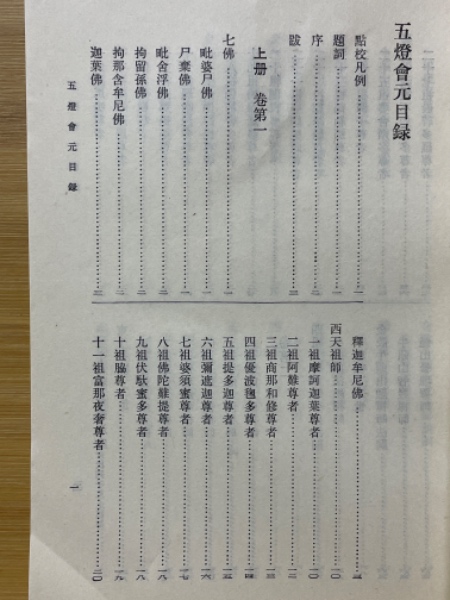 五燈會元目録
點校凡例……一
題詞……一
序……一
跋……三
上册　卷第一
七佛……一
毗婆尸佛……一
尸棄佛……一
毗舍浮佛……二
拘留孫佛……二
拘那含牟尼佛……二
迦葉佛……二
釋迦牟尼佛……三
西天祖師……一〇
一祖摩訶迦葉尊者……一〇
二祖阿難尊者……一二
三祖商那和修尊者……一三
四祖優波毱多尊者……一四
五祖提多迦尊者……一五
六祖彌遮迦尊者……一六
七祖婆須蜜尊者……一七
八祖佛陀難提尊者……一八
九祖伏馱蜜多尊者……一八
十祖脇尊者……一九
十一祖富那夜奢尊者……二〇
五燈會元目録
一